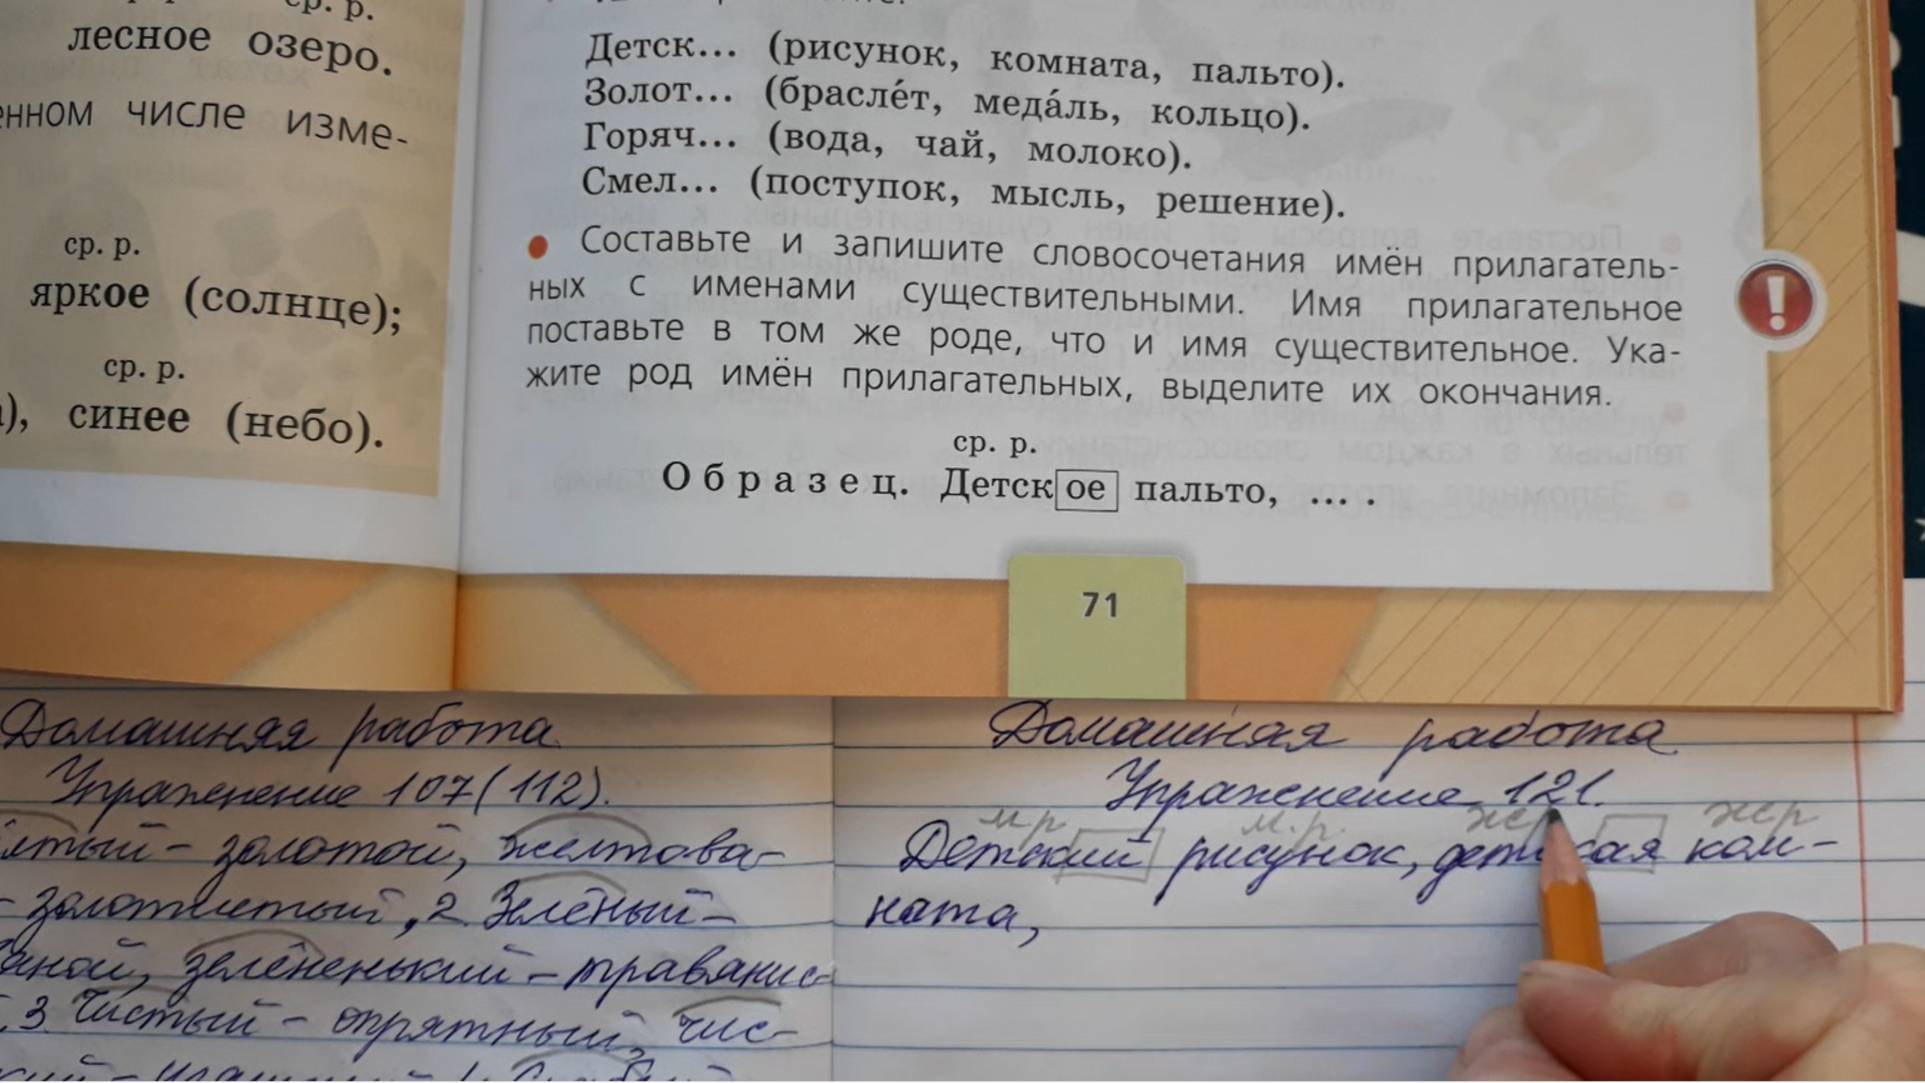 ср. р.
лесное озеро.
енном числе изме-
ср. р.
яркое (солнце);
ср. р.
), синее (небо).
Детск... (рисунок, комната, пальто).
Золот... (брасле́т, меда́ль, кольцо).
Горяч... (вода, чай, молоко).
Смел... (поступок, мысль, решение).
Составьте и запишите словосочетания имён прилагатель-
ных с именами существительными. Имя прилагательное
поставьте в том же роде, что и имя существительное. Ука-
жите род имён прилагательных, выделите их окончания.
ср. р.
Образец. Детское пальто, ... .
71
Домашняя работа
Упражнение 107(112).
лтый - золотой, желтова-
- золотистый, 2. Зелёный -
аной, зелёненький - травянис-
3. Чистый - опрятный, чис-
Домашняя работа
Упражнение 121.
м.р. м.р. ж.р. ж.р
Детский рисунок, детская ком-
ната,